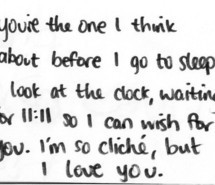 you're the one I think
about before I go to sleep
I look at the clock, waiting
for 11:11 so I can wish for
you. I'm so cliché, but
I love you.